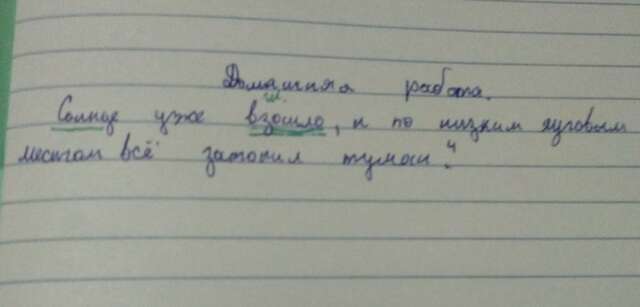 Домашняя работа.
Солнце уже взошло, и по низким луговым
местам всё затопил туман.⁴